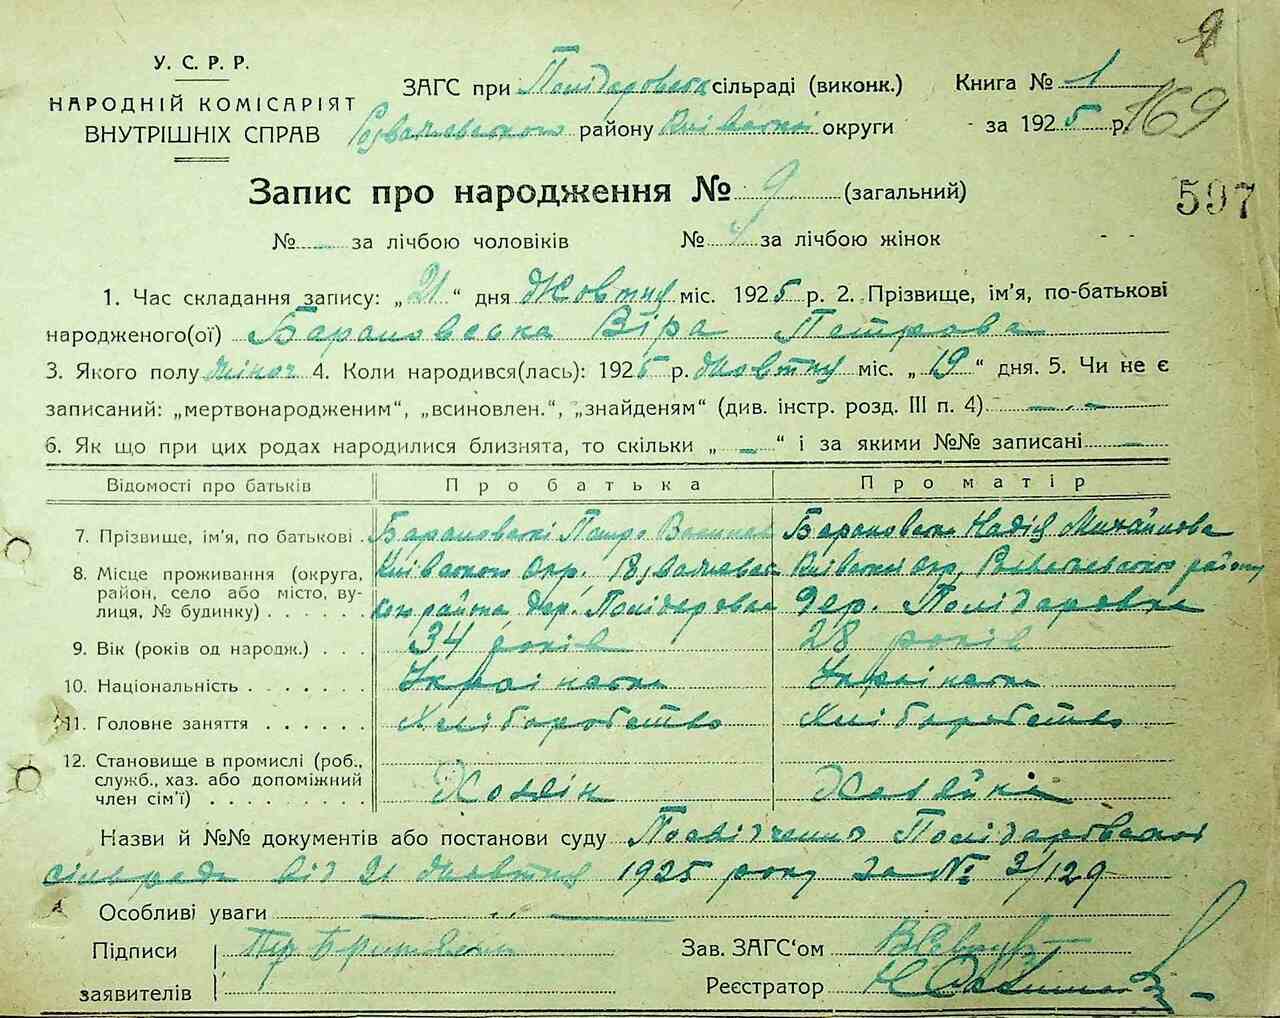 У. С. Р. Р.
НАРОДНІЙ КОМІСАРІЯТ
ВНУТРІШНІХ СПРАВ
ЗАГС при сільраді (виконк.)
району Київської округи
Книга № 1
за 1925 р.
169
597
Запис про народження № 9 (загальний)
№ за лічбою чоловіків № 4 за лічбою жінок
1. Час складання запису: „21“ дня Жовтня міс. 1925 р. 2. Прізвище, ім'я, по-батькові
народженого(ої) Барановська Віра Петрова
3. Якого полу жіноч 4. Коли народився(лась): 1925 р. Жовтня міс. „19“ дня. 5. Чи не є
записаний: „мертвонародженим“, „всиновлен.“, „знайденям“ (див. інстр. розд. III п. 4)
6. Як що при цих родах народилися близнята, то скільки „ — “ і за якими №№ записані —
Відомості про батьків Про батька Про матір
7. Прізвище, ім'я, по батькові . Барановський Петро Барановська Надія Михайлова
8. Місце проживання (округа, район, село або місто, вулиця, № будинку) . . . . . .
Київської Окр. Київської окр. району
кого района дер. дер.
9. Вік (років од народж.) . . . 34 років 28 років
10. Національність . . . . . . . Українська Українська
11. Головне заняття . . . . . . Хліборобство Хліборобство
12. Становище в промислі (роб., служб., хаз. або допоміжний член сім'ї) . . . . . . . . . Хозяін Хазяйка
Назви й №№ документів або постанови суду Посвідчення
сільради від 21 Жовтня 1925 року за № 2/129
Особливі уваги
Підписи
заявителів
Зав. ЗАГС'ом
Реєстратор